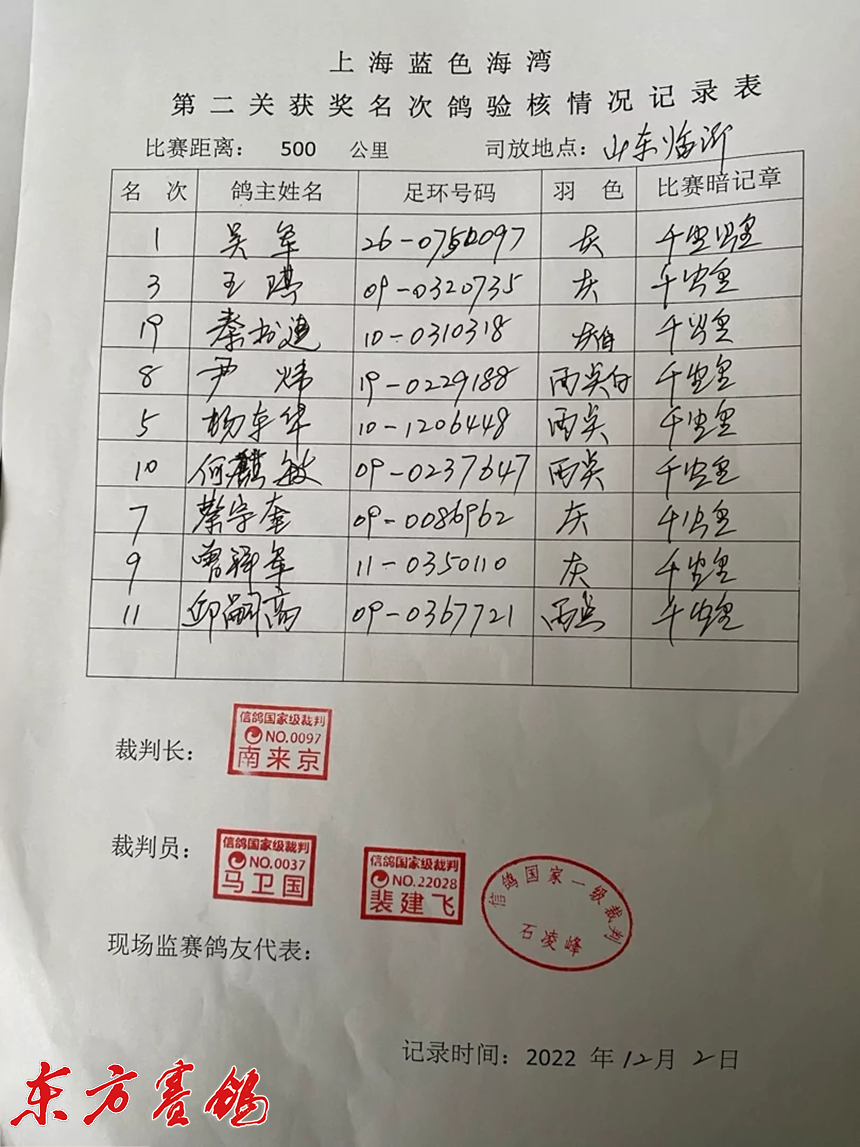 上海蓝色海湾
第二关获奖名次鸽验核情况记录表
比赛距离： 500 公里 司放地点：山东临沂
名 次 鸽主姓名 足环号码 羽 色 比赛暗记章
1 吴军 26-0750097 灰
3 王琪 09-0320735 灰
19 秦松迪 10-0310318 灰白
8 尹炜 19-0229188 雨点白
5 杨东华 10-1206448 雨点
10 何麒敏 09-0237647 雨点
7 蔡宇奎 09-0086962 灰
9 曹祥军 11-0350110 灰
11 邱嗣高 09-0367721 雨点
裁判长：
信鸽国家级裁判
NO.0097
南来京
裁判员：
信鸽国家级裁判
NO.0037
马卫国
信鸽国家级裁判
NO.22028
裴建飞
信鸽国家一级裁判
石凌峰
现场监赛鸽友代表：
记录时间：2022 年12月2日
东方赛鸽